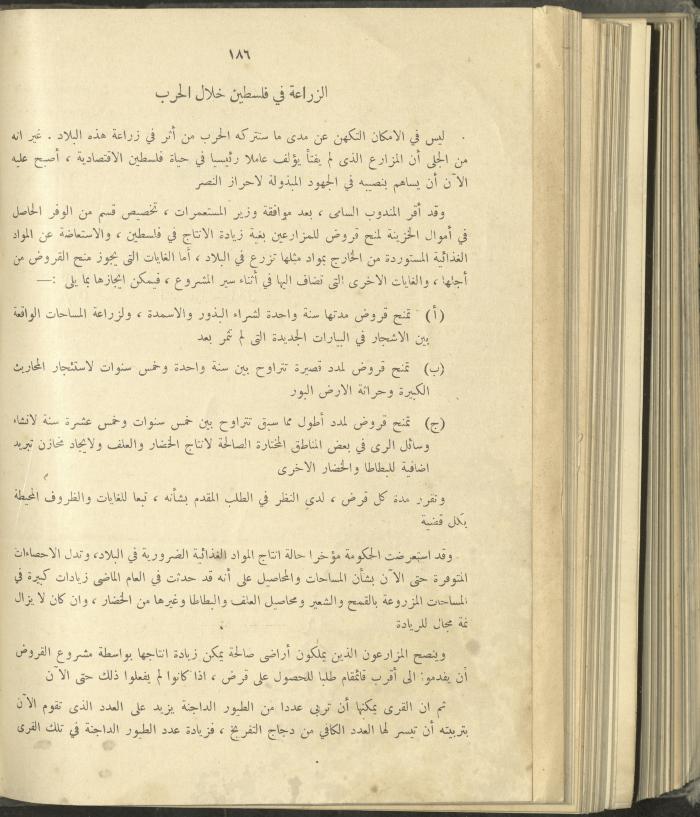 ١٨٦
الزراعة في فلسطين خلال الحرب
ليس في الامكان التكهن عن مدى ما ستتركه الحرب من أثر في زراعة هذه البلاد . غير انه
من الجلى أن المزارع الذى لم يفتأ يؤلف عاملا رئيسيا في حياة فلسطين الاقتصادية ، أصبح عليه
الآن أن يساهم بنصيبه في الجهود المبذولة لاحراز النصر
وقد أقر المندوب السامى ، بعد موافقة وزير المستعمرات ، تخصيص قسم من الوفر الحاصل
في أموال الخزينة لمنح قروض للمزارعين بغية زيادة الانتاج في فلسطين ، والاستعاضة عن المواد
الغذائية المستوردة من الخارج بمواد مثلها تزرع في البلاد ، أما الغايات التى يجوز منح القروض من
أجلها ، والغايات الاخرى التى تضاف اليها في أثناء سير المشروع ، فيمكن ايجازها بما يلى :—
(أ) تمنح قروض مدتها سنة واحدة لشراء البذور والاسمدة ، ولزراعة المساحات الواقعة
بين الاشجار في البيارات الجديدة التى لم تثمر بعد
(ب) تمنح قروض لمدد قصيرة تتراوح بين سنة واحدة وخمس سنوات لاستئجار المحاريث
الكبيرة وحراثة الارض البور
(ج) تمنح قروض لمدد أطول مما سبق تتراوح بين خمس سنوات وخمس عشرة سنة لانشاء
وسائل الرى في بعض المناطق المختارة الصالحة لانتاج الخضار والعلف ولايجاد مخازن تبريد
اضافية للبطاطا والخضار الاخرى
وتقرر مدة كل قرض ، لدى النظر في الطلب المقدم بشأنه ، تبعا للغايات والظروف المحيطة
بكل قضية
وقد استعرضت الحكومة مؤخرا حالة انتاج المواد الغذائية الضرورية في البلاد، وتدل الاحصاءات
المتوفرة حتى الآن بشأن المساحات والمحاصيل على أنه قد حدثت في العام الماضى زيادات كبيرة في
المساحات المزروعة بالقمح والشعير ومحاصيل العلف والبطاطا وغيرها من الخضار ، وان كان لا يزال
ثمة مجال للزيادة
وينصح المزارعون الذين يملكون أراضى صالحة يمكن زيادة انتاجها بواسطة مشروع القروض
أن يقدموا الى أقرب قائمقام طلبا للحصول على قرض ، اذا كانوا لم يفعلوا ذلك حتى الآن
ثم ان القرى يمكنها أن تربى عددا من الطيور الداجنة يزيد على العدد الذى تقوم الآن
بتربيته أن تيسر لها العدد الكافي من دجاج التفريخ ، فزيادة عدد الطيور الداجنة في تلك القرى